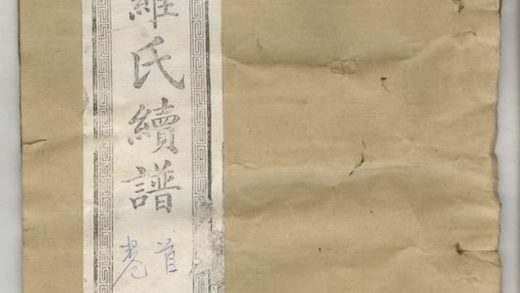 羅氏續譜
卷首